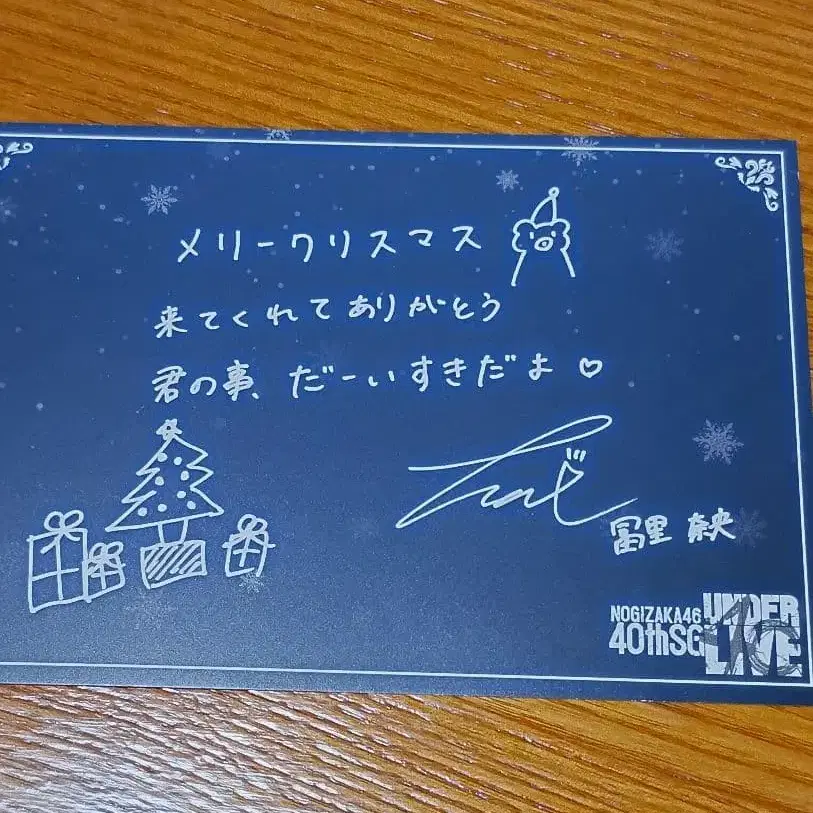 メリークリスマス
来てくれてありがとう
君の事、だーいすきだよ♡
冨里 奈央
NOGIZAKA46
40thSG
UNDER
LIVE